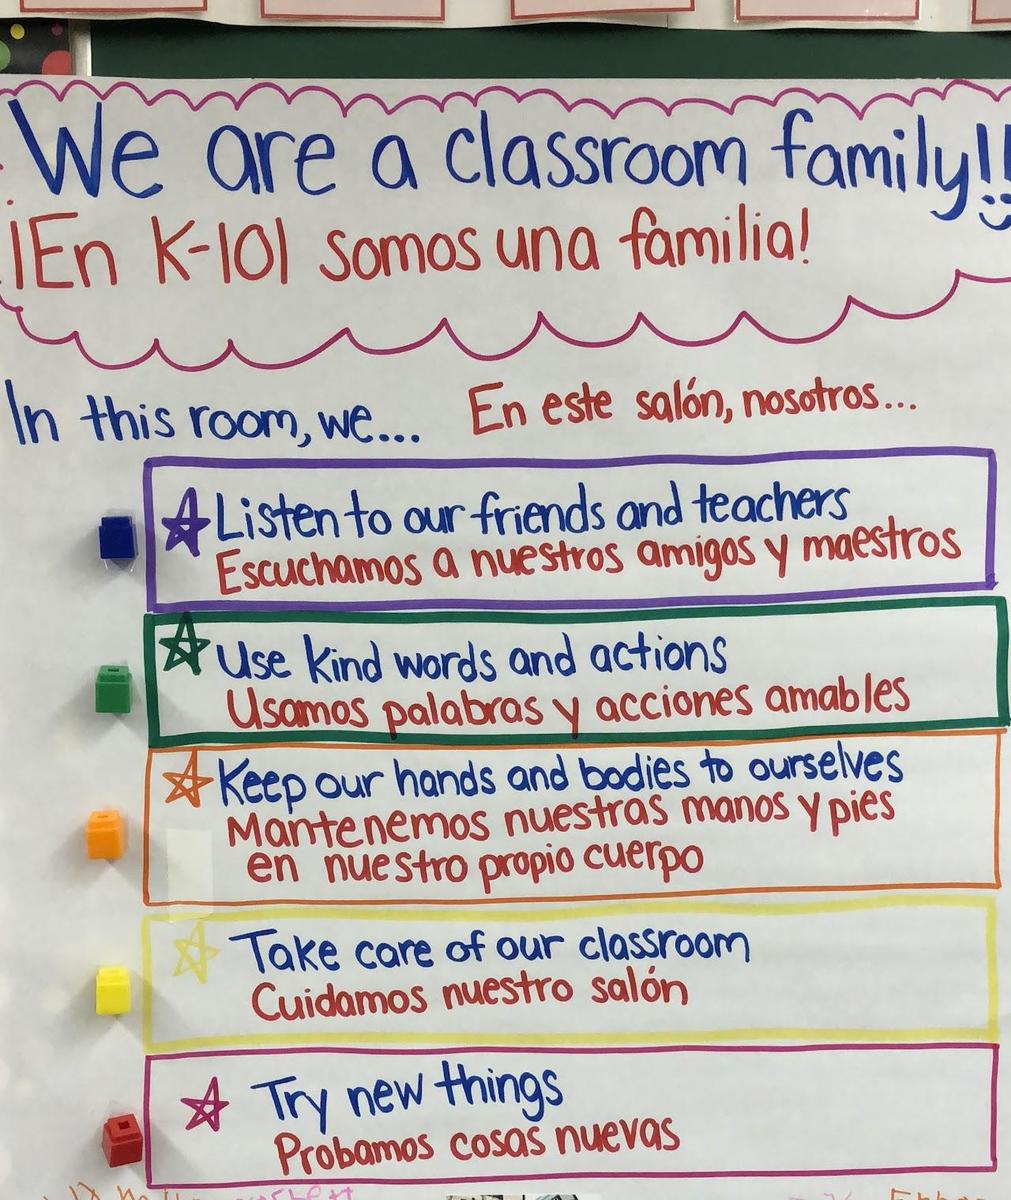 We are a classroom family!!
¡En K-101 somos una familia!
In this room, we...
En este salón, nosotros...
Listen to our friends and teachers
Escuchamos a nuestros amigos y maestros
Use kind words and actions
Usamos palabras y acciones amables
Keep our hands and bodies to ourselves
Mantenemos nuestras manos y pies
en nuestro propio cuerpo
Take care of our classroom
Cuidamos nuestro salón
Try new things
Probamos cosas nuevas